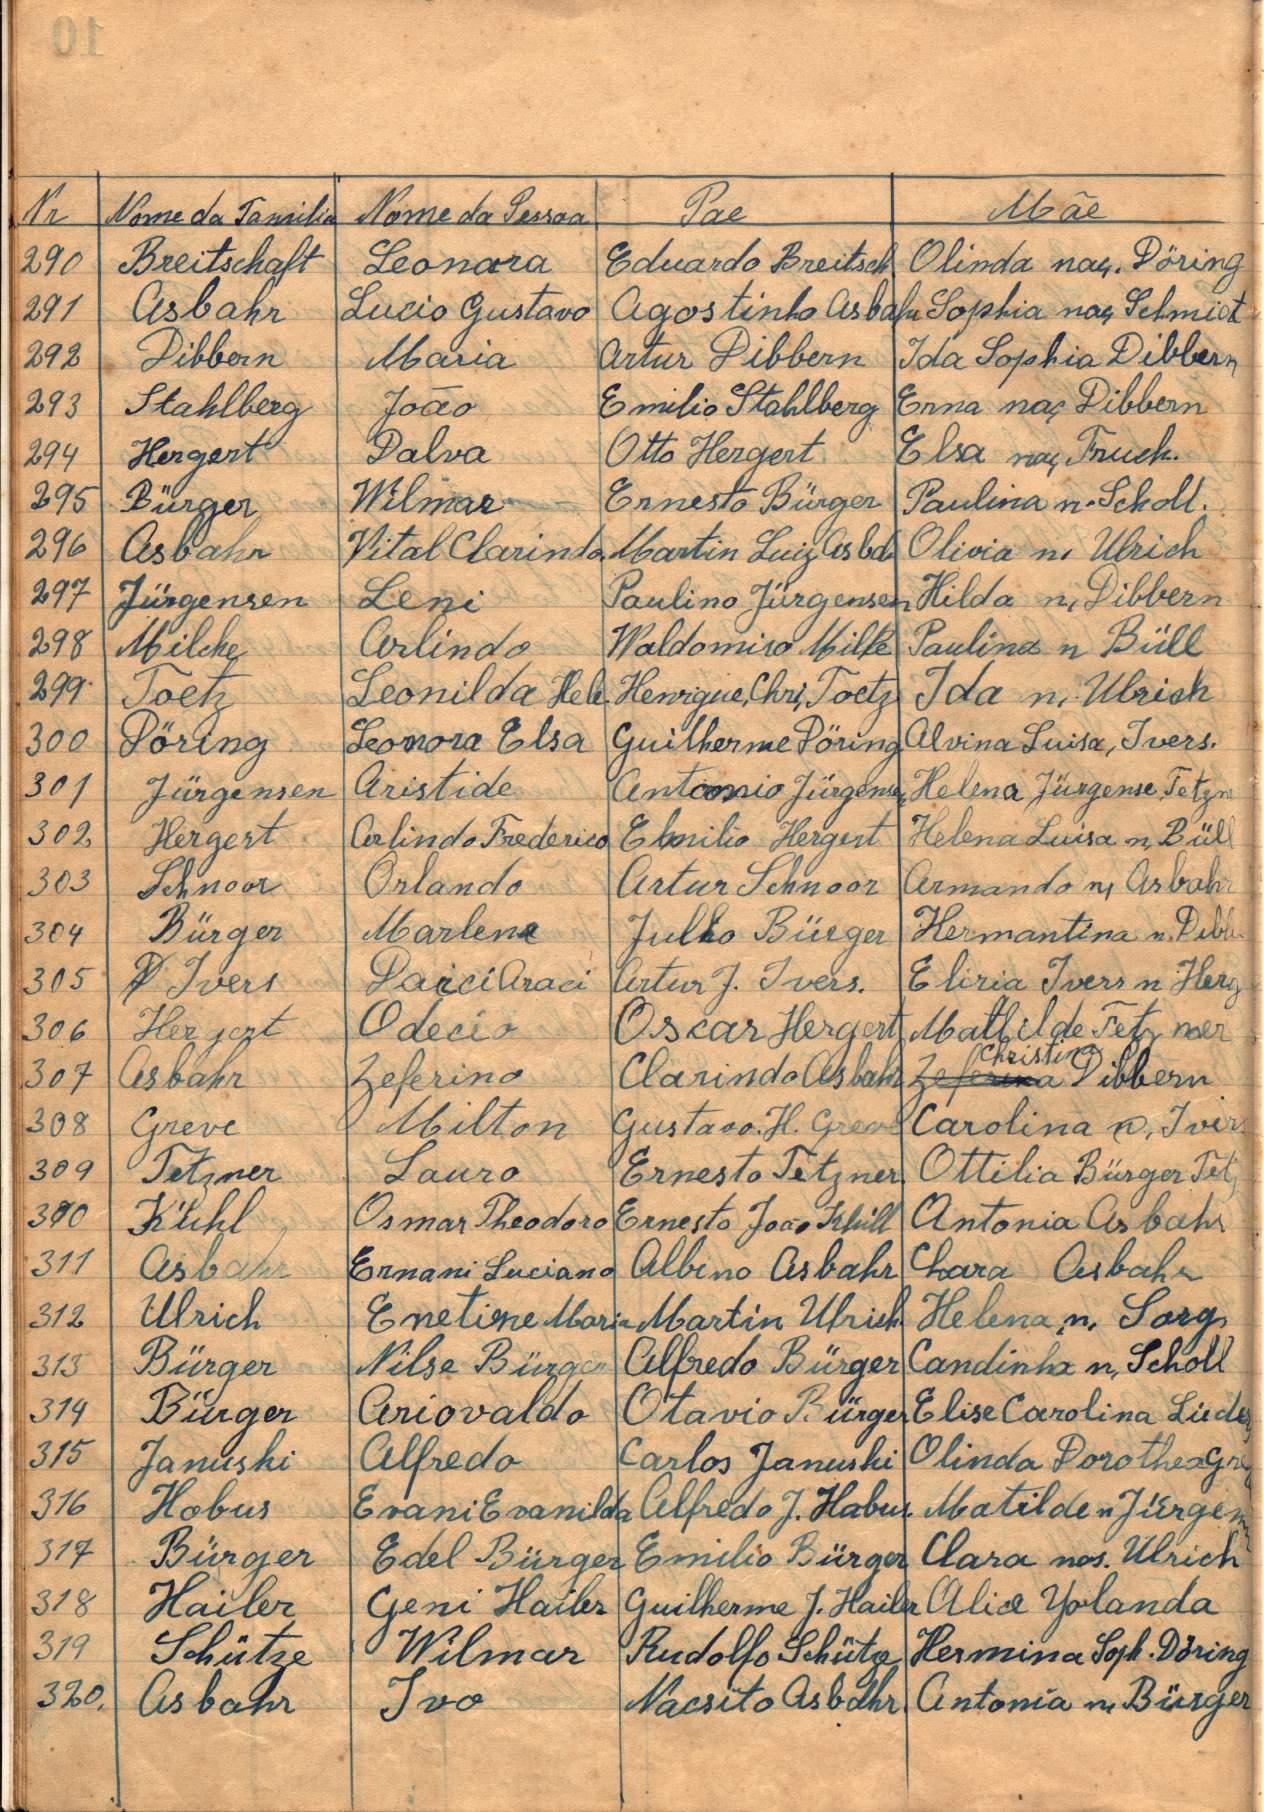 Nr Nome da Familia Nome da Pessoa Pae Mãe
290 Breitschaft Leonora Eduardo Breitsch Olinda naç. Döring
291 Asbahr Lucio Gustavo Agostinho Asbahr Sophia naç Schmidt
292 Dibbern Maria Artur Dibbern Ida Sophia Dibbern
293 Stahlberg João Emilio Stahlberg Erna naç Dibbern
294 Hergert Dalva Otto Hergert Elsa naç Fruck.
295 Bürger Wilmar Ernesto Bürger Paulina n. Scholl.
296 Asbahr Vital Clarindo Martin Luiz Asbah Olivia n, Ulrich
297 Jürgensen Leni Paulino Jürgensen Hilda n, Dibbern
298 Milche Arlindo Waldomiro Milke Paulina n Büll
299 Toetz Leonilda Hele. Henrique, Chri, Toetz Ida n, Ulrich
300 Döring Leonora Elsa Guilherme Döring Alvina Luisa, Ivers.
301 Jürgensen Aristide Antonio Jürgense, Helena Jürgense Tetzn
302 Hergert Arlindo Frederico Emilio Hergert Helena Luisa n, Büll
303 Schnoor Orlando Artur Schnoor Armando n, Asbahr
304 Bürger Marlene Julho Bürger Hermantina n. Dibb
305 Ivers Daici Araci Artur J. Ivers. Eliria Ivers n Herg
306 Hergert Odecio Oscar Hergert Mathilde Tetzner
Christina
307 Asbahr Zeferino Clarindo Asbahr Zeferina Dibbern
308 Greve Milton Gustavo. H. Greve Carolina n, Ivers
309 Tetzner Lauro Ernesto Tetzner. Ottilia Bürger Tetz
310 Kühl Osmar Theodoro Ernesto João Khüll Antonia Asbahr
311 Asbahr Ernani Luciano Albino Asbahr Chara Asbahr
312 Ulrich Enetine Maria Martin Ulrich Helena n. Sorg
313 Bürger Nilse Bürger Alfredo Bürger Candinha n, Scholl
314 Bürger Ariovaldo Otavio Bürger Elise Carolina Lieders
315 Januski Alfredo Carlos Januski Olinda Dorothea Gre
316 Hobus Evani Evanilda Alfredo J. Habus. Matilde n Jürgensen
317 Bürger Edel Bürger Emilio Bürger Clara nas. Ulrich
318 Hailer Geni Hailer Guilherme J. Hailer Alice Yolanda
319 Schütze Wilmar Rudolfo Schütze Hermina Soph. Döring
320. Asbahr Ivo Nacsito Asbahr. Antonia n, Bürger